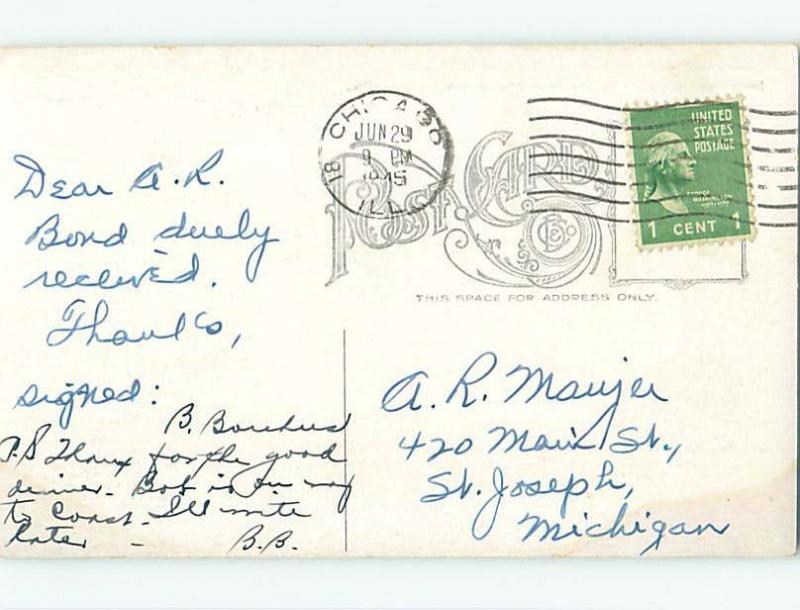 CHICAGO
18
JUN 29
9 PM
1945
ILL.
UNITED
STATES
POSTAGE
GEORGE
WASHINGTON
1 CENT 1
POST CARD
THIS SPACE FOR ADDRESS ONLY.
Dear A.R.
Bond duely
recieved.
Thanks,
signed:
B.
P.S Thanx for the good
dinner. Bob is on way
to Coast. Ill write
later -
B.B.
A. R. Maujer
420 Main St.,
St. Joseph,
Michigan